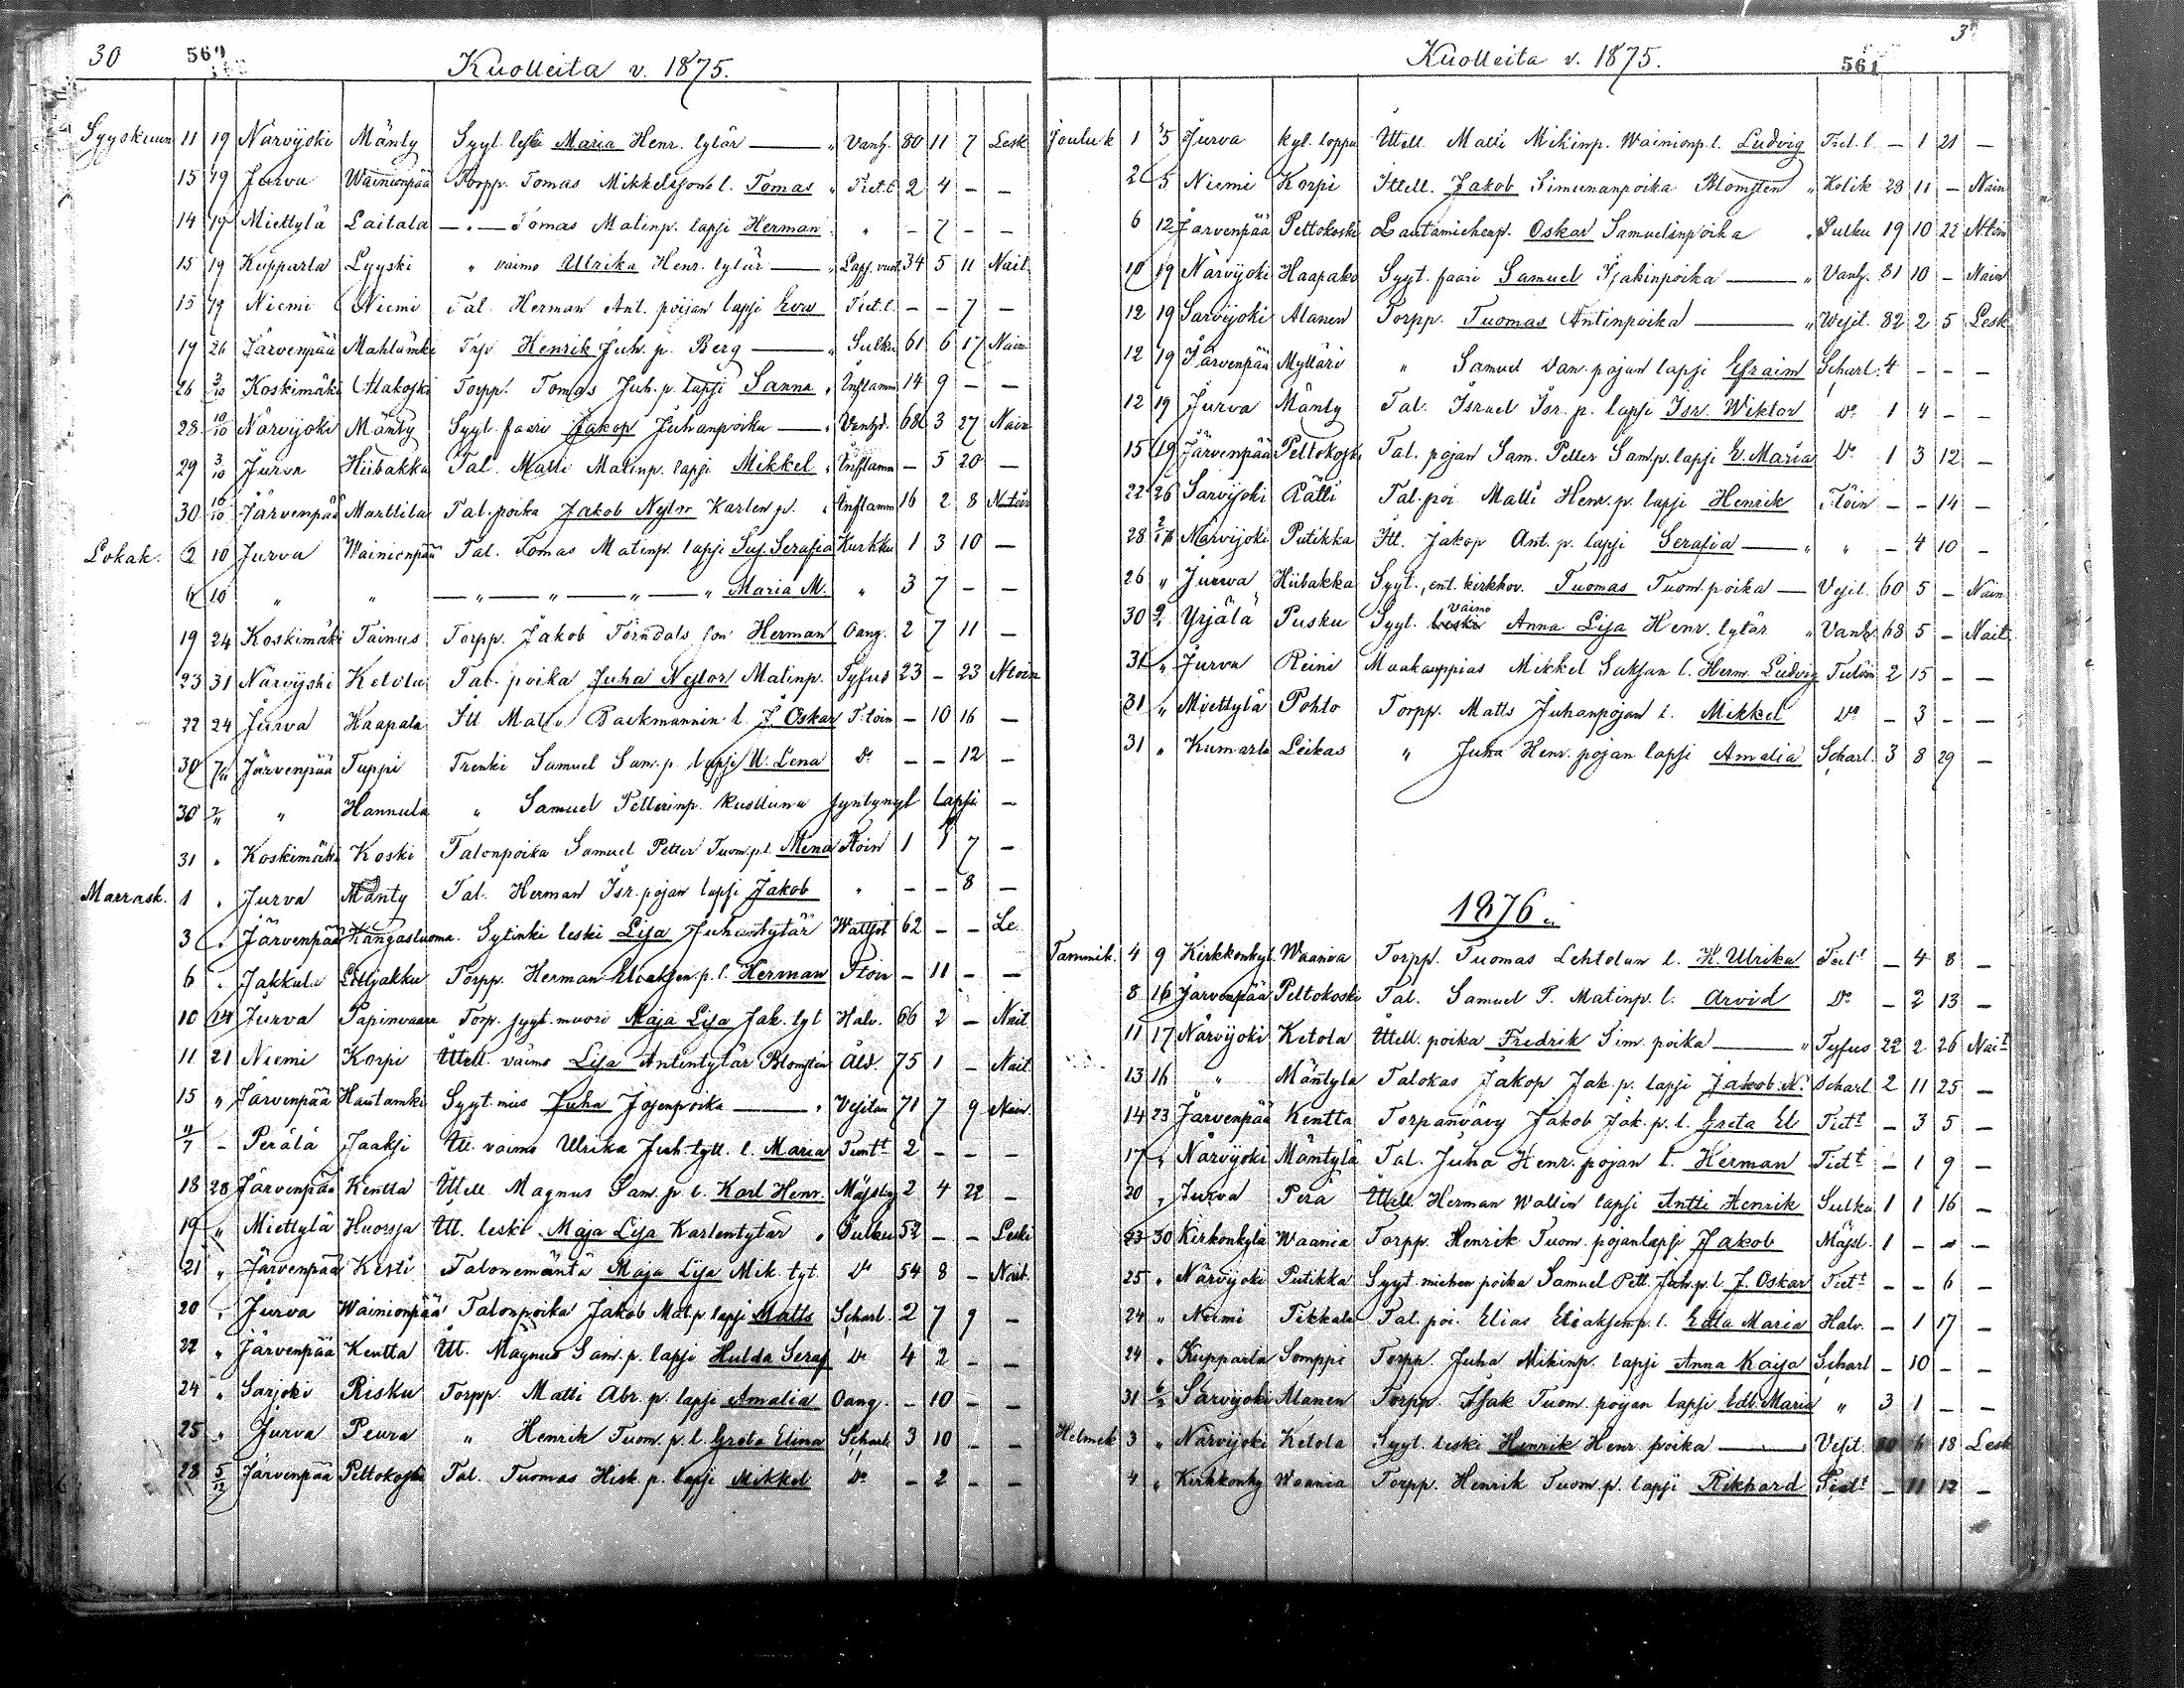 30 560 Kuolleita v. 1875.
Syyskuun 11 19 Närvijoki Mänty Syyt. leski Maria Henr. tytär — " Vanh. 80 11 7 Lesk
15 19 Jurva Wainionpää Torpp. Tomas Mikkelssons l. Tomas " Tiet.t 2 4 – –
14 19 Miettylä Laitala — " — Tomas Matinp. lapsi Herman " – 7 – –
15 19 Kupparla Lyyski " vaimo Ulrika Henr. tytär — " Laps. vuot. 34 5 11 Nait.
15 19 Niemi Niemi Tal. Herman Ant. poijan lapsi Eva Tiet.t. – – 7 –
17 26 Järvenpää Mahlamäki Trp Henrik Juh. p. Berg — " Sulku 61 6 17 Nain
26 3/10 Koskimäki Alakoski Torpp. Tomas Juh. p. lapsi Sanna " Inflamm 14 9 – –
28 10/10 Närvijoki Mänty Syyt. faari Jakop Juhanpoika — " Vanhd. 68 3 27 Nain
29 3/10 Jurva Hiibakka Tal. Matti Matinp. lapsi Mikkel " Inflamm – 5 20 –
30 16/10 Järvenpää Marttila Tal. poika Jakob Nestor Karlen p. " Inflamm 16 2 8 N–töin
Lokak. 2 10 Jurva Wainionpää Tal. Tomas Matinp. lapsi Sus. Serafia Kurkku 1 3 10 –
6 10 " " — " — " — " — " Maria M. " 3 7 – –
19 24 Koskimäki Tainus Torpp. Jakob Törndals son Herman Oang. 2 7 11 –
23 31 Närvijoki Ketola Tal. poika Juha Nestor Matinp. Tyfus 23 – 23 Ntoin
22 24 Jurva Haapala Itt Matts Backmannin l. J. Oskar T:töin – 10 16 –
30 7/11 Järvenpää Tuppi Trenki Samuel Sam. p. lapsi U. Lena Do – – 12 –
30 7/11 " Hannula " Samuel Petterinp. kuolluna syntynyt lapsi –
31 " Koskimäki Koski Talonpoika Samuel Petter Tuom.p.l. Mena Ttöin 1 1 7 –
Marrask. 1 " Jurva Mänty Tal. Herman Isr. pojan lapsi Jakob " – – 8 –
3 " Järvenpää Kangasluoma Sytinki leski Lisa Juhantytär Wattjot 62 – – Le.
6 " Jakkula Lilljakku Torpp. Herman Eliaksen. p. l. Herman Ttöin – 11 – –
10 14 Jurva Papinvaara Torp. syyt. muori Maja Lisa Jak. tyt Halv. 66 2 – Nait.
11 21 Niemi Korpi Ittell. vaimo Lisa Antintytär Blomsten Åld. 75 1 – Nait.
15 " Järvenpää Hautamäki Syyt. mies Juha Josenpoika — " Vesitau 71 7 9 Nain.
11/7 – Perälä Jaaksi Itt. vaimo Ulrika Juh. tytt. l. Maria Tunt.t 2 – – –
18 28 Järvenpää Kentta Ittell. Magnus Sam. p. l. Karl Henr. Mässlig 2 4 22 –
19 " Miettylä Huorsja Itt. leski Maja Lisa Karlentytär " Sulku 52 – – Leski
21 " Järvenpää Kesti Talonemäntä Maja Lisa Mik. tyt. Do 54 8 – Nait.
20 " Jurva Wainionpää Talonpoika Jakob Mat. p. lapsi Matts Scharl. 2 7 9 –
22 " Järvenpää Kentta Itt. Magnus Sam. p. lapsi Hulda Seraf Do 4 2 – –
24 " Sarjoki Risku Torpp. Matti Abr. p. lapsi Amalia Oang. – 10 – –
25 " Jurva Peura " Henrik Tuom. p. l. Greta Elina Scharl. 3 10 – –
28 5/12 Järvenpää Peltokoski Tal. Tuomas Hisk. p. lapsi Mikkel Do – 2 – –
Kuolleita v. 1875. 561 3
Jouluk 1 5 Jurva kyl. loppu Ittell. Matti Mikinp. Wainionp. l. Ludvig Tiet. t – 1 21 –
2 5 Niemi Korpi Ittell. Jakob Simunanpoika Blomsten " Kolik 23 11 – Nain
6 12 Järvenpää Peltokoski Lautamiehenp. Oskar Samuelinpoika " Sulku 19 10 22 N–töin
10 19 Närvijoki Haapako Syyt. faari Samuel Isakinpoika — " Vanh. 81 10 – Nain
12 19 Sarvijoki Alanen Torpp. Tuomas Antinpoika — " Vesit. 82 2 5 Lesk
12 19 Järvenpää Myllari " Samuel Dan. pojan lapsi Efraim Scharl. 4 – – –
12 19 Jurva Mänty Tal. Israel Isr. p. lapsi Isr. Wiktor Do 1 4 – –
15 19 Järvenpää Peltokoski Tal. pojan Sam. Petter Sam.p. lapsi E. Maria Do 1 3 12 –
22 26 Sarvijoki Rätti Tal. poi Matti Henr. p. lapsi Henrik T:töin – – 14 –
28 Närvijoki Putikka Itt. Jakop Ant. p. lapsi Serafia — " " – 4 10 –
26 " Jurva Hiibakka Syyt., ent. kirkkov. Tuomas Tuom. poika — Vesit. 60 5 – Nain
30 Yrjälä Pusku Syyt. leski vaimo Anna Lisa Henr. tytär " Vanh. 68 5 – Nait.
31 " Jurva Reini Maakauppias Mikkel Saksan l. Herm. Ludvig Tietöin 2 15 – –
31 " Miettylä Pohto Torpp. Matts Juhanpojan l. Mikkel Do – 3 – –
31 " Kumarla Leikas " Juha Henr. pojan lapsi Amalia Scharl. 3 8 29 –
1876.
Tammik. 4 9 Kirkkonkyl. Waania Torpp. Tuomas Lehtolan l. H. Ulrika Tiet.t – 4 8 –
8 16 Järvenpää Peltokoski Tal. Samuel P. Matinp. l. Arvid Do – 2 13 –
11 17 Närvijoki Ketola Ittell. poika Fredrik Sim. poika — " Tyfus 22 2 26 Nait
13 16 " Mäntyla Talokas Jakop Jak. p. lapsi Jakob N. Scharl 2 11 25 –
14 23 Järvenpää Kentta Torpanvävy Jakob Jak. p. l. Greta El Tiett – 3 5 –
17 " Närvijoki Mäntylä Tal. Juha Henr. pojan l. Herman Tiett – 1 9 –
20 " Jurva Perä Ittell Herman Wallin lapsi Antti Henrik Sulku 1 1 16 –
23 30 Kirkonkylä Waania Torpp. Henrik Tuom. pojanlapsi Jakob Mässl. 1 – – –
25 " Närvijoki Putikka Syyt. miehen poika Samuel Pett. Juh. p. l J. Oskar Tiett – – 6 –
24 " Niemi Tikkala Tal. poi. Elias Eliaksenp. l. Edla Maria Halv. – 1 17 –
24 " Kupparla Somppi Torpp. Juha Mikinp. lapsi Anna Kaisa Scharl – 10 – –
31 6/2 Särvijoki Alanen Torpp. Isak Tuom. poijan lapsi Edl. Maria " 3 1 – –
Helmik 3 " Närvijoki Ketola Syyt. leski Henrik Henr. poika — Vesit. 6 18 Lesk
4 " Kirkkonky Waania Torpp. Henrik Tuom. p. lapsi Rikhard Tiett – 11 12 –